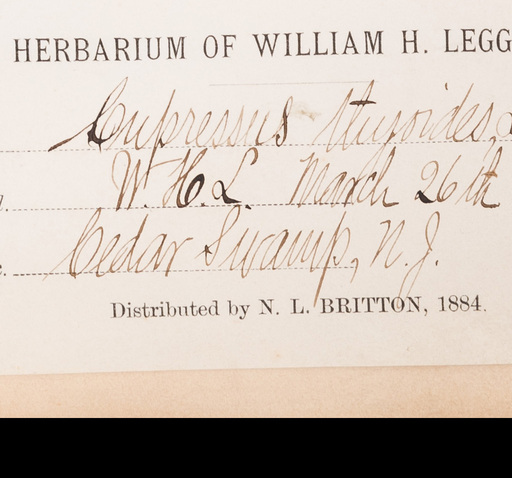 HERBARIUM OF WILLIAM H. LEGG
Cupressus thyoides, L
W. H. L. March 26th
Cedar Swamp, N. J.
Distributed by N. L. BRITTON, 1884.